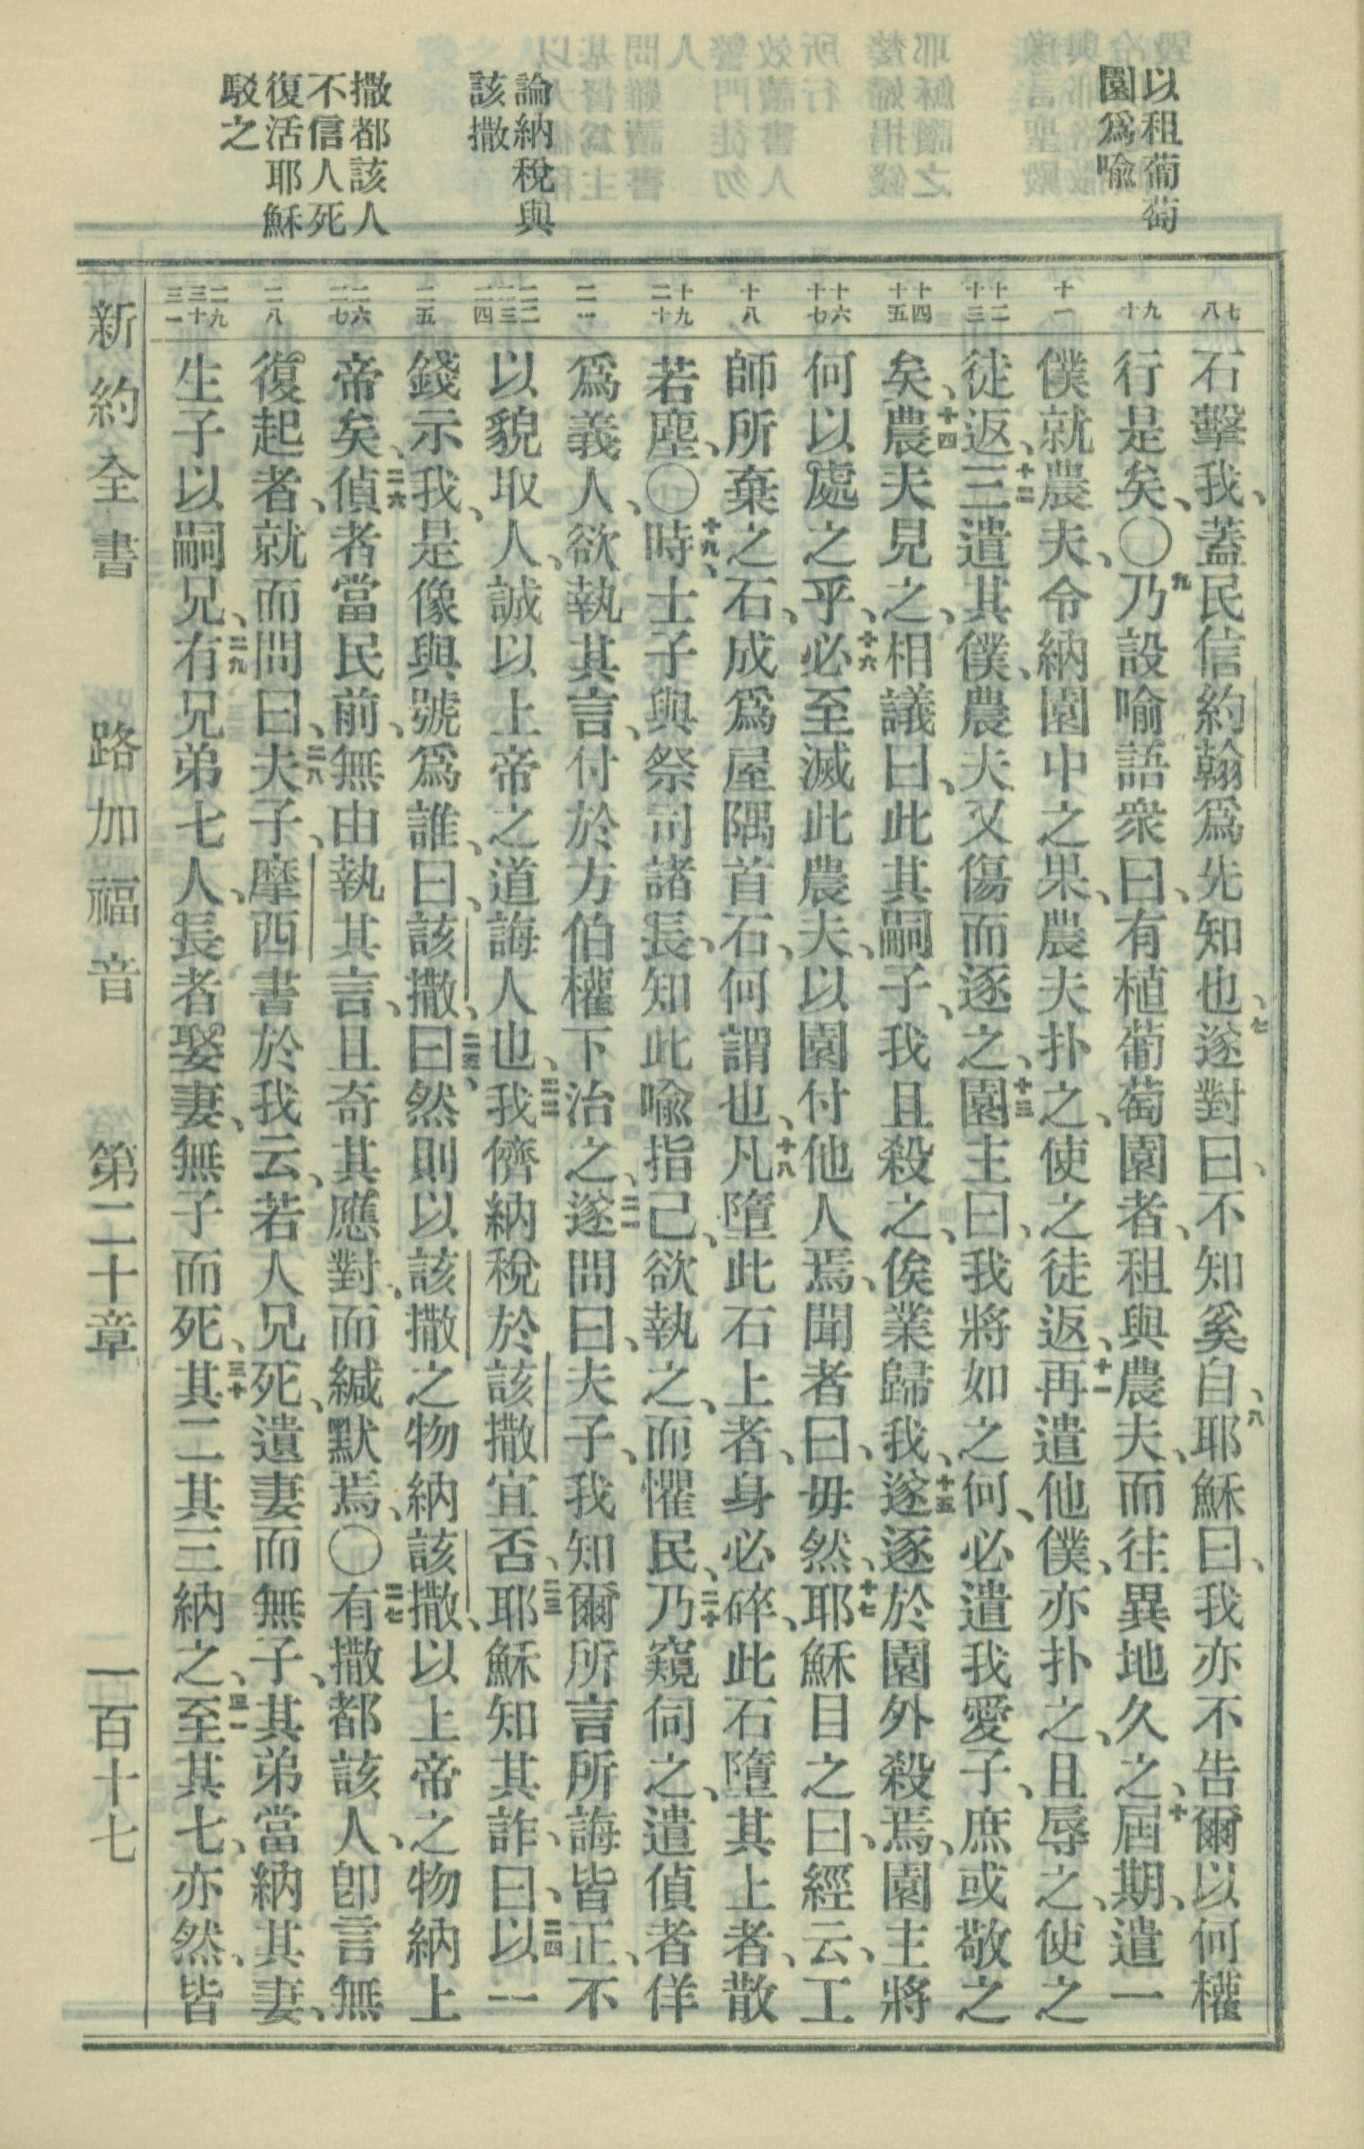 以租葡萄
園爲喩
論納稅與
該撒
撒都該人
不信人死
復活耶穌
駁之
七 八
九 十
十一
十二 十三
十四 十五
十六 十七
十八
十九 二十
二一
二二 二三 二四
二五
二六 二七
二八
二九 三十 三一
石擊我、蓋民信約翰爲先知也、七遂對曰、不知奚自、八耶穌曰、我亦不告爾以何權
行是矣、〇九乃設喻語衆曰、有植葡萄園者、租與農夫、而往異地久之、十屆期、遣一
僕就農夫、令納園中之果、農夫扑之、使之徒返、十一再遣他僕、亦扑之、且辱之、使之
徒返、十二三遣其僕、農夫又傷而逐之、十三園主曰、我將如之何、必遣我愛子、庶或敬之
矣、十四農夫見之、相議曰、此其嗣子、我且殺之、俟業歸我、十五遂逐於園外殺焉、園主將
何以處之乎、十六必至滅此農夫、以園付他人焉、聞者曰、毋然、十七耶穌目之曰、經云、工
師所棄之石、成爲屋隅首石、何謂也、十八凡墮此石上者、身必碎、此石墮其上者、散
若塵、〇十九、時士子與祭司諸長、知此喩指己、欲執之、而懼民、二十乃窺伺之、遣偵者佯
爲義人、欲執其言、付於方伯權下治之、二一遂問曰、夫子、我知爾所言所誨皆正、不
以貌取人、誠以上帝之道誨人也、二二我儕納稅於該撒宜否、二三耶穌知其詐、曰、二四以一
錢示我、是像與號爲誰、曰、該撒、二五、曰然則以該撒之物納該撒、以上帝之物納上
帝矣、二六偵者當民前、無由執其言、且奇其應對、而緘默焉、〇二七有撒都該人、卽言無
復起者、就而問曰、二八夫子、摩西書於我云、若人兄死、遺妻而無子、其弟當納其妻、
生子以嗣兄、二九有兄弟七人、長者娶妻、無子而死、三十其二其三納之、三一至其七、亦然、皆
新約全書 路加福音 第二十章 一百十七